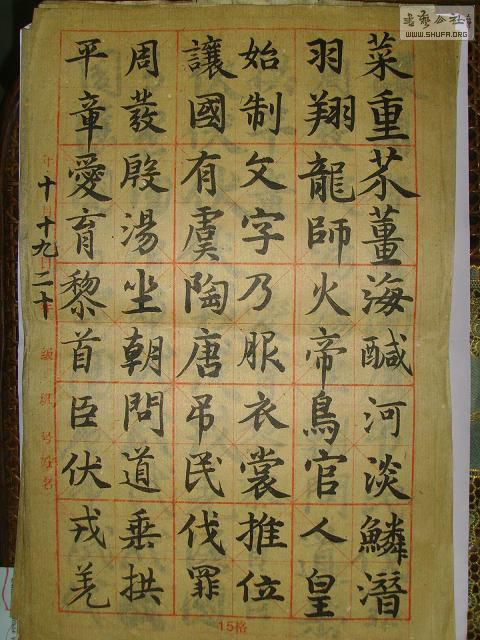 書藝公社
WWW.SHUFA.ORG
菜重芥薑海醎河淡鱗潛
羽翔龍師火帝鳥官人皇
始制文字乃服衣裳推位
讓國有虞陶唐吊民伐罪
周發殷湯坐朝問道垂拱
平章愛育黎首臣伏戎羌
十十九二十
15格